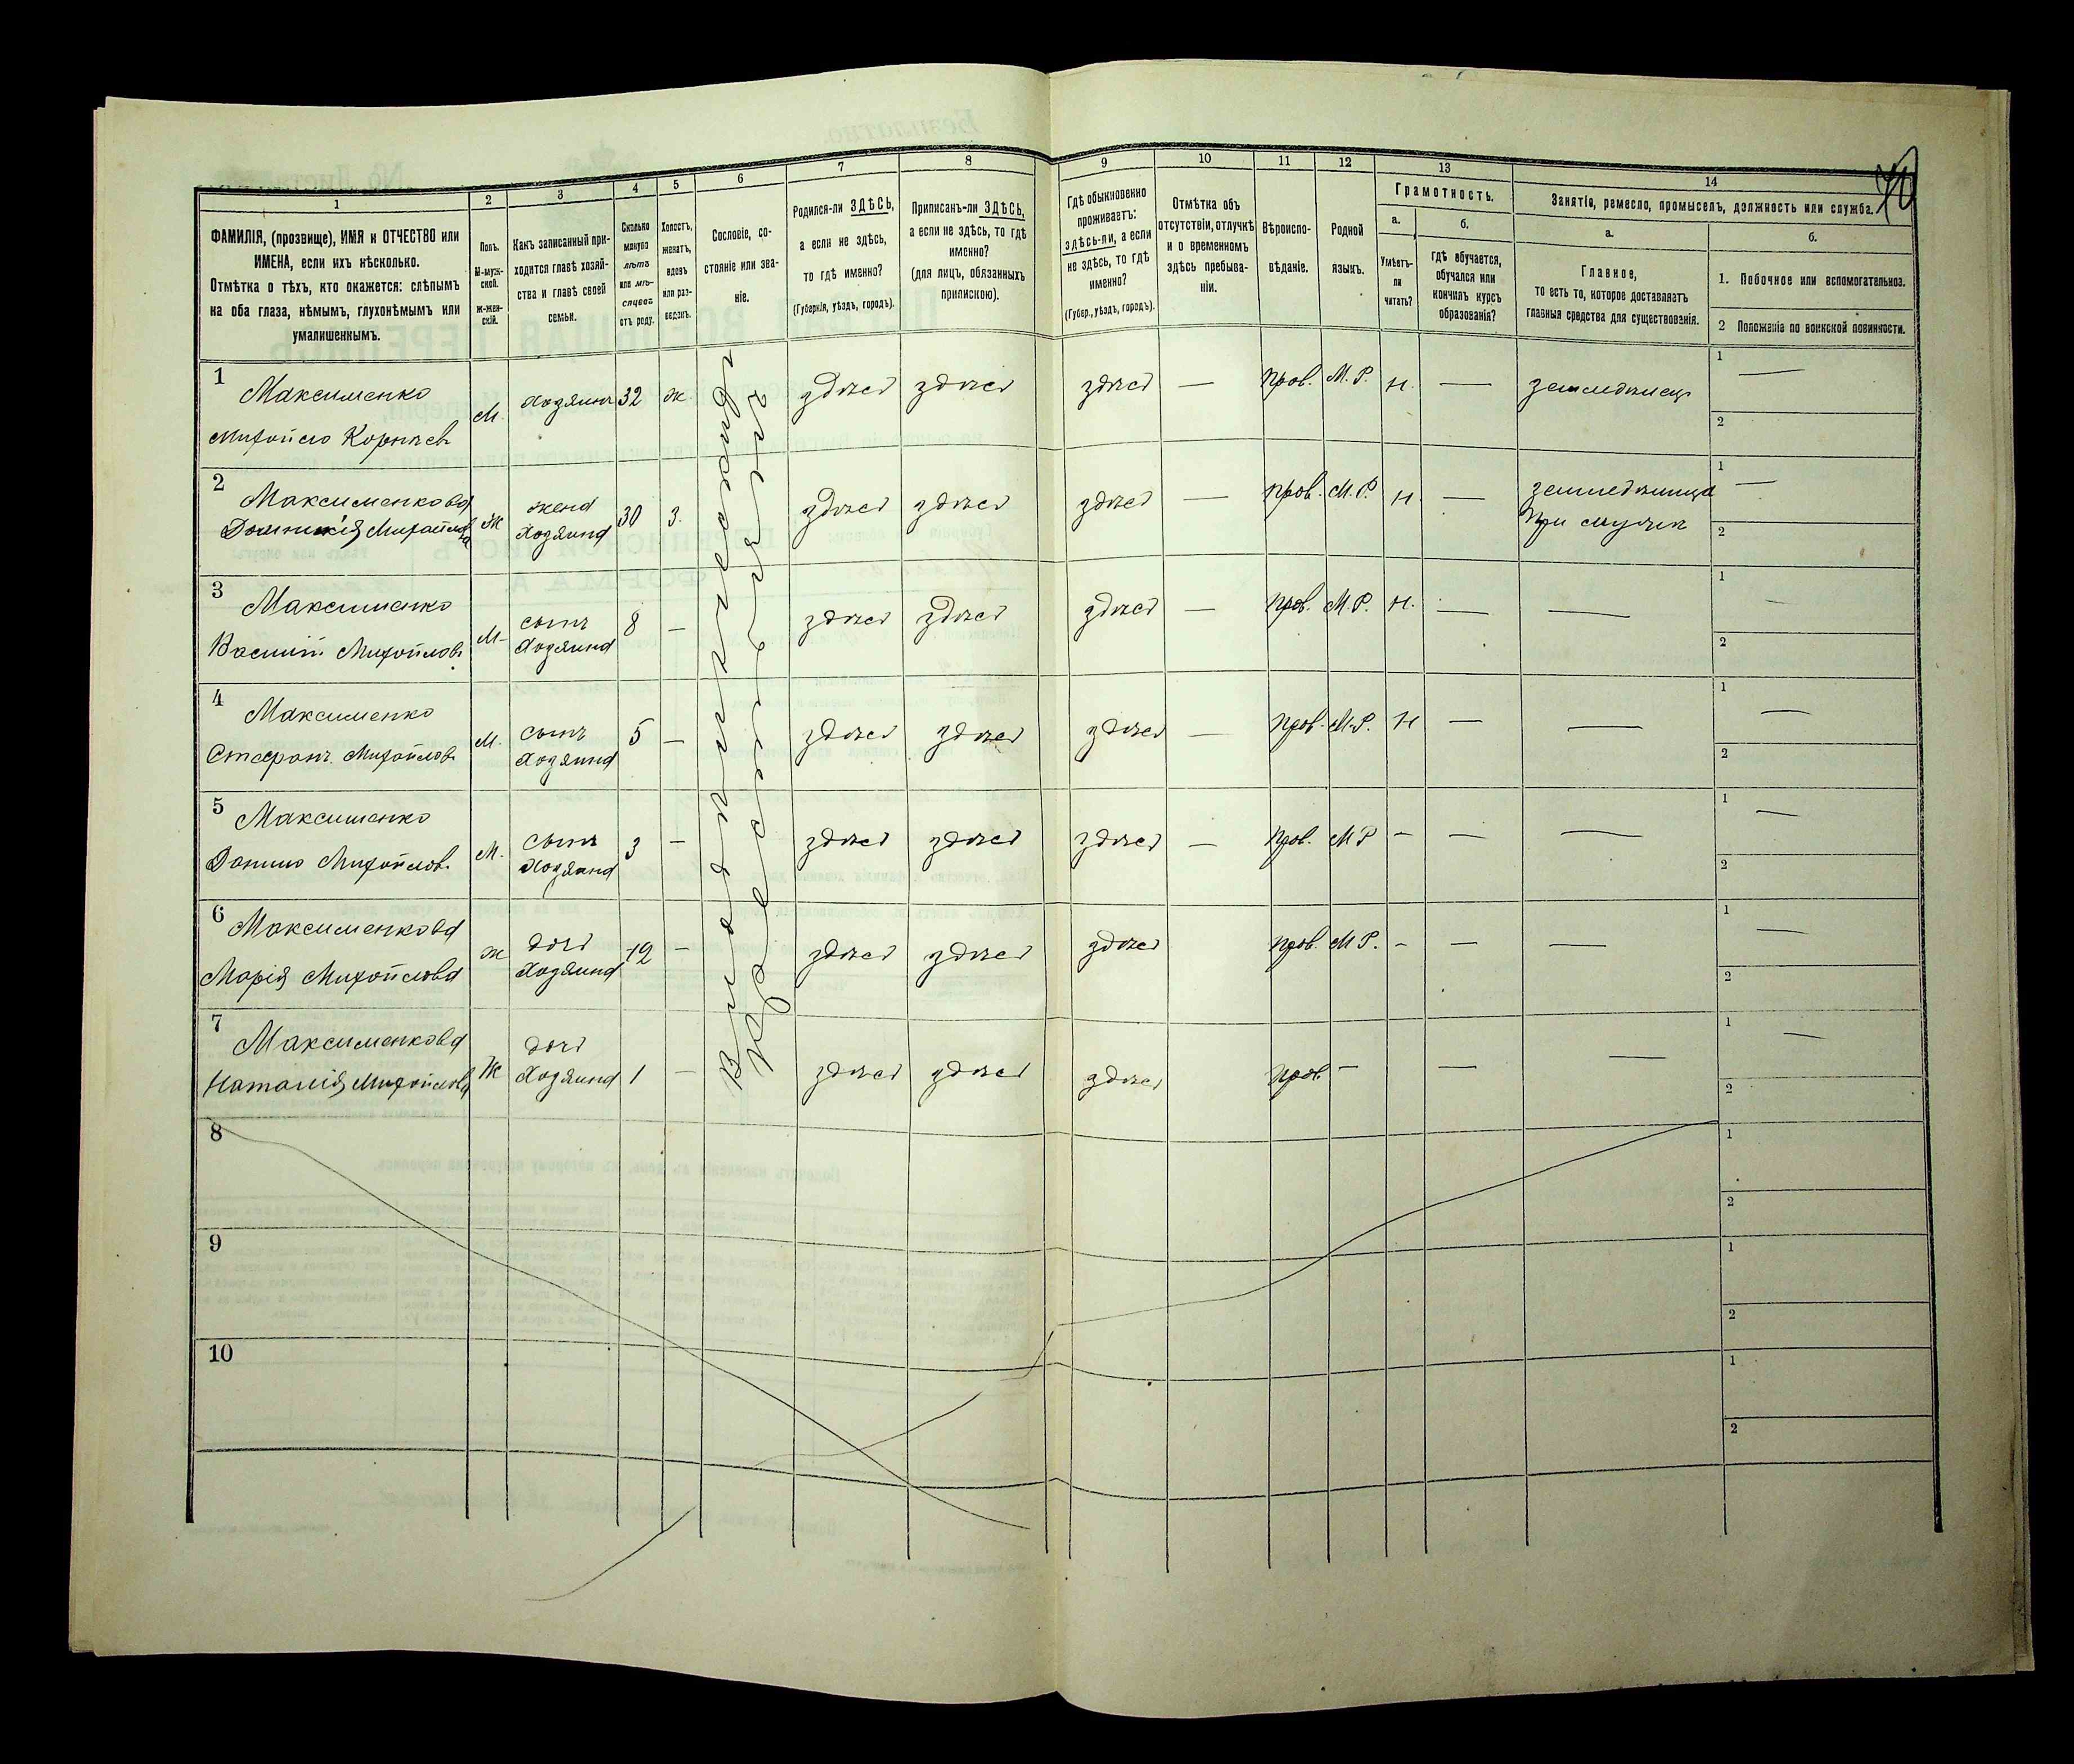 1 2 3 4 5 6 7 8 9 10 11 12 13 14
ФАМИЛІЯ, (прозвище), ИМЯ и ОТЧЕСТВО или
ИМЕНА, если ихъ нѣсколько.
Отмѣтка о тѣхъ, кто окажется: слѣпымъ
на оба глаза, нѣмымъ, глухонѣмымъ или
умалишеннымъ.
Полъ.
М-муж-
ской.
Ж-жен-
скій.
Какъ записанный при-
ходится главѣ хозяй-
ства и главѣ своей
семьи.
Сколько
минуло
лѣтъ
или мѣ-
сяцевъ
отъ роду.
Холостъ,
женатъ,
вдовъ
или раз-
веденъ.
Сословіе, со-
стояніе или зва-
ніе.
Родился-ли ЗДѢСЬ,
а если не здѣсь,
то гдѣ именно?
(Губернія, уѣздъ, городъ).
Приписанъ-ли ЗДѢСЬ,
а если не здѣсь, то гдѣ
именно?
(для лицъ, обязанныхъ
припискою).
Гдѣ обыкновенно
проживаетъ:
здѣсь-ли, а если
не здѣсь, то гдѣ
именно?
(Губер., уѣздъ, городъ).
Отмѣтка объ
отсутствіи, отлучкѣ
и о временномъ
здѣсь пребыва-
ніи.
Вѣроиспо-
вѣданіе.
Родной
языкъ.
Грамотность.
а.
Умѣетъ-
ли
читать?
б.
гдѣ обучается,
обучался или
кончилъ курсъ
образованія?
Занятія, ремесло, промыселъ, должность или служба.
а.
Главное,
то есть то, которое доставляетъ
главныя средства для существованія.
б.
1. Побочное или вспомогательное.
2 Положеніе по воинской повинности.
1 Максименко
Михойло Корнѣевъ
М. Хозяинъ 32 ж. здѣсь здѣсь здѣсь — прав. М. Р. н. — земледѣлецъ 1 —
2
2 Максименкова
Домникія Михайлова
Ж жена
хозяина 30 з. здѣсь здѣсь здѣсь — прав. М. Р. н — земледѣлица
при мужѣ 1 —
2
3 Максименко
Василій Михойловъ
М сынъ
хозяина 8 — здѣсь здѣсь здѣсь — прав. М. Р. н. — — 1 —
2
4 Максименко
Стефанъ Михойловъ
М. сынъ
хозяина 5 — здѣсь здѣсь здѣсь — прав. М. Р. Н — — 1 —
2
5 Максименко
Данило Михойлов.
М. сынъ
хозяина 3 — здѣсь здѣсь здѣсь — прав. М Р — — — 1 —
2
6 Максименкова
Марія Михойлова
ж дочь
хозяина 12 — здѣсь здѣсь здѣсь прав. М Р. — — — 1 —
2
7 Максименкова
Наталія Михойлова
Ж дочь
хозяина 1 — здѣсь здѣсь здѣсь прав. — — — 1 —
2
8 1
2
9 1
2
10 1
2